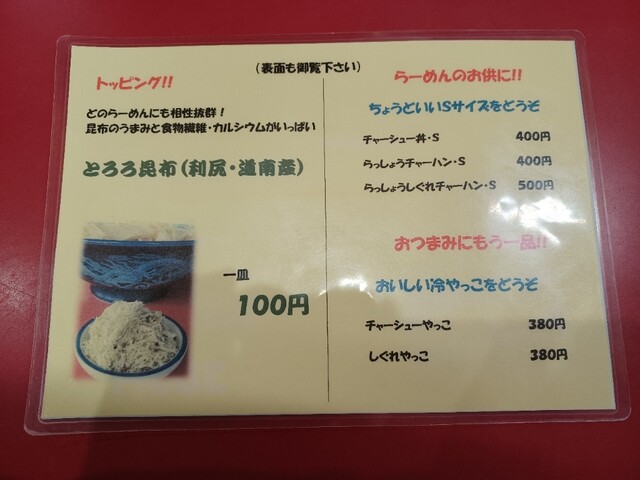 (表面も御覧下さい)
トッピング!!
どのらーめんにも相性抜群!
昆布のうまみと食物繊維・カルシウムがいっぱい
とろろ昆布(利尻・道南産)
一皿
100円
らーめんのお供に!!
ちょうどいいSサイズをどうぞ
チャーシュー丼・S 400円
らっしょうチャーハン・S 400円
らっしょうしぐれチャーハン・S 500円
おつまみにもう一品!!
おいしい冷やっこをどうぞ
チャーシューやっこ 380円
しぐれやっこ 380円